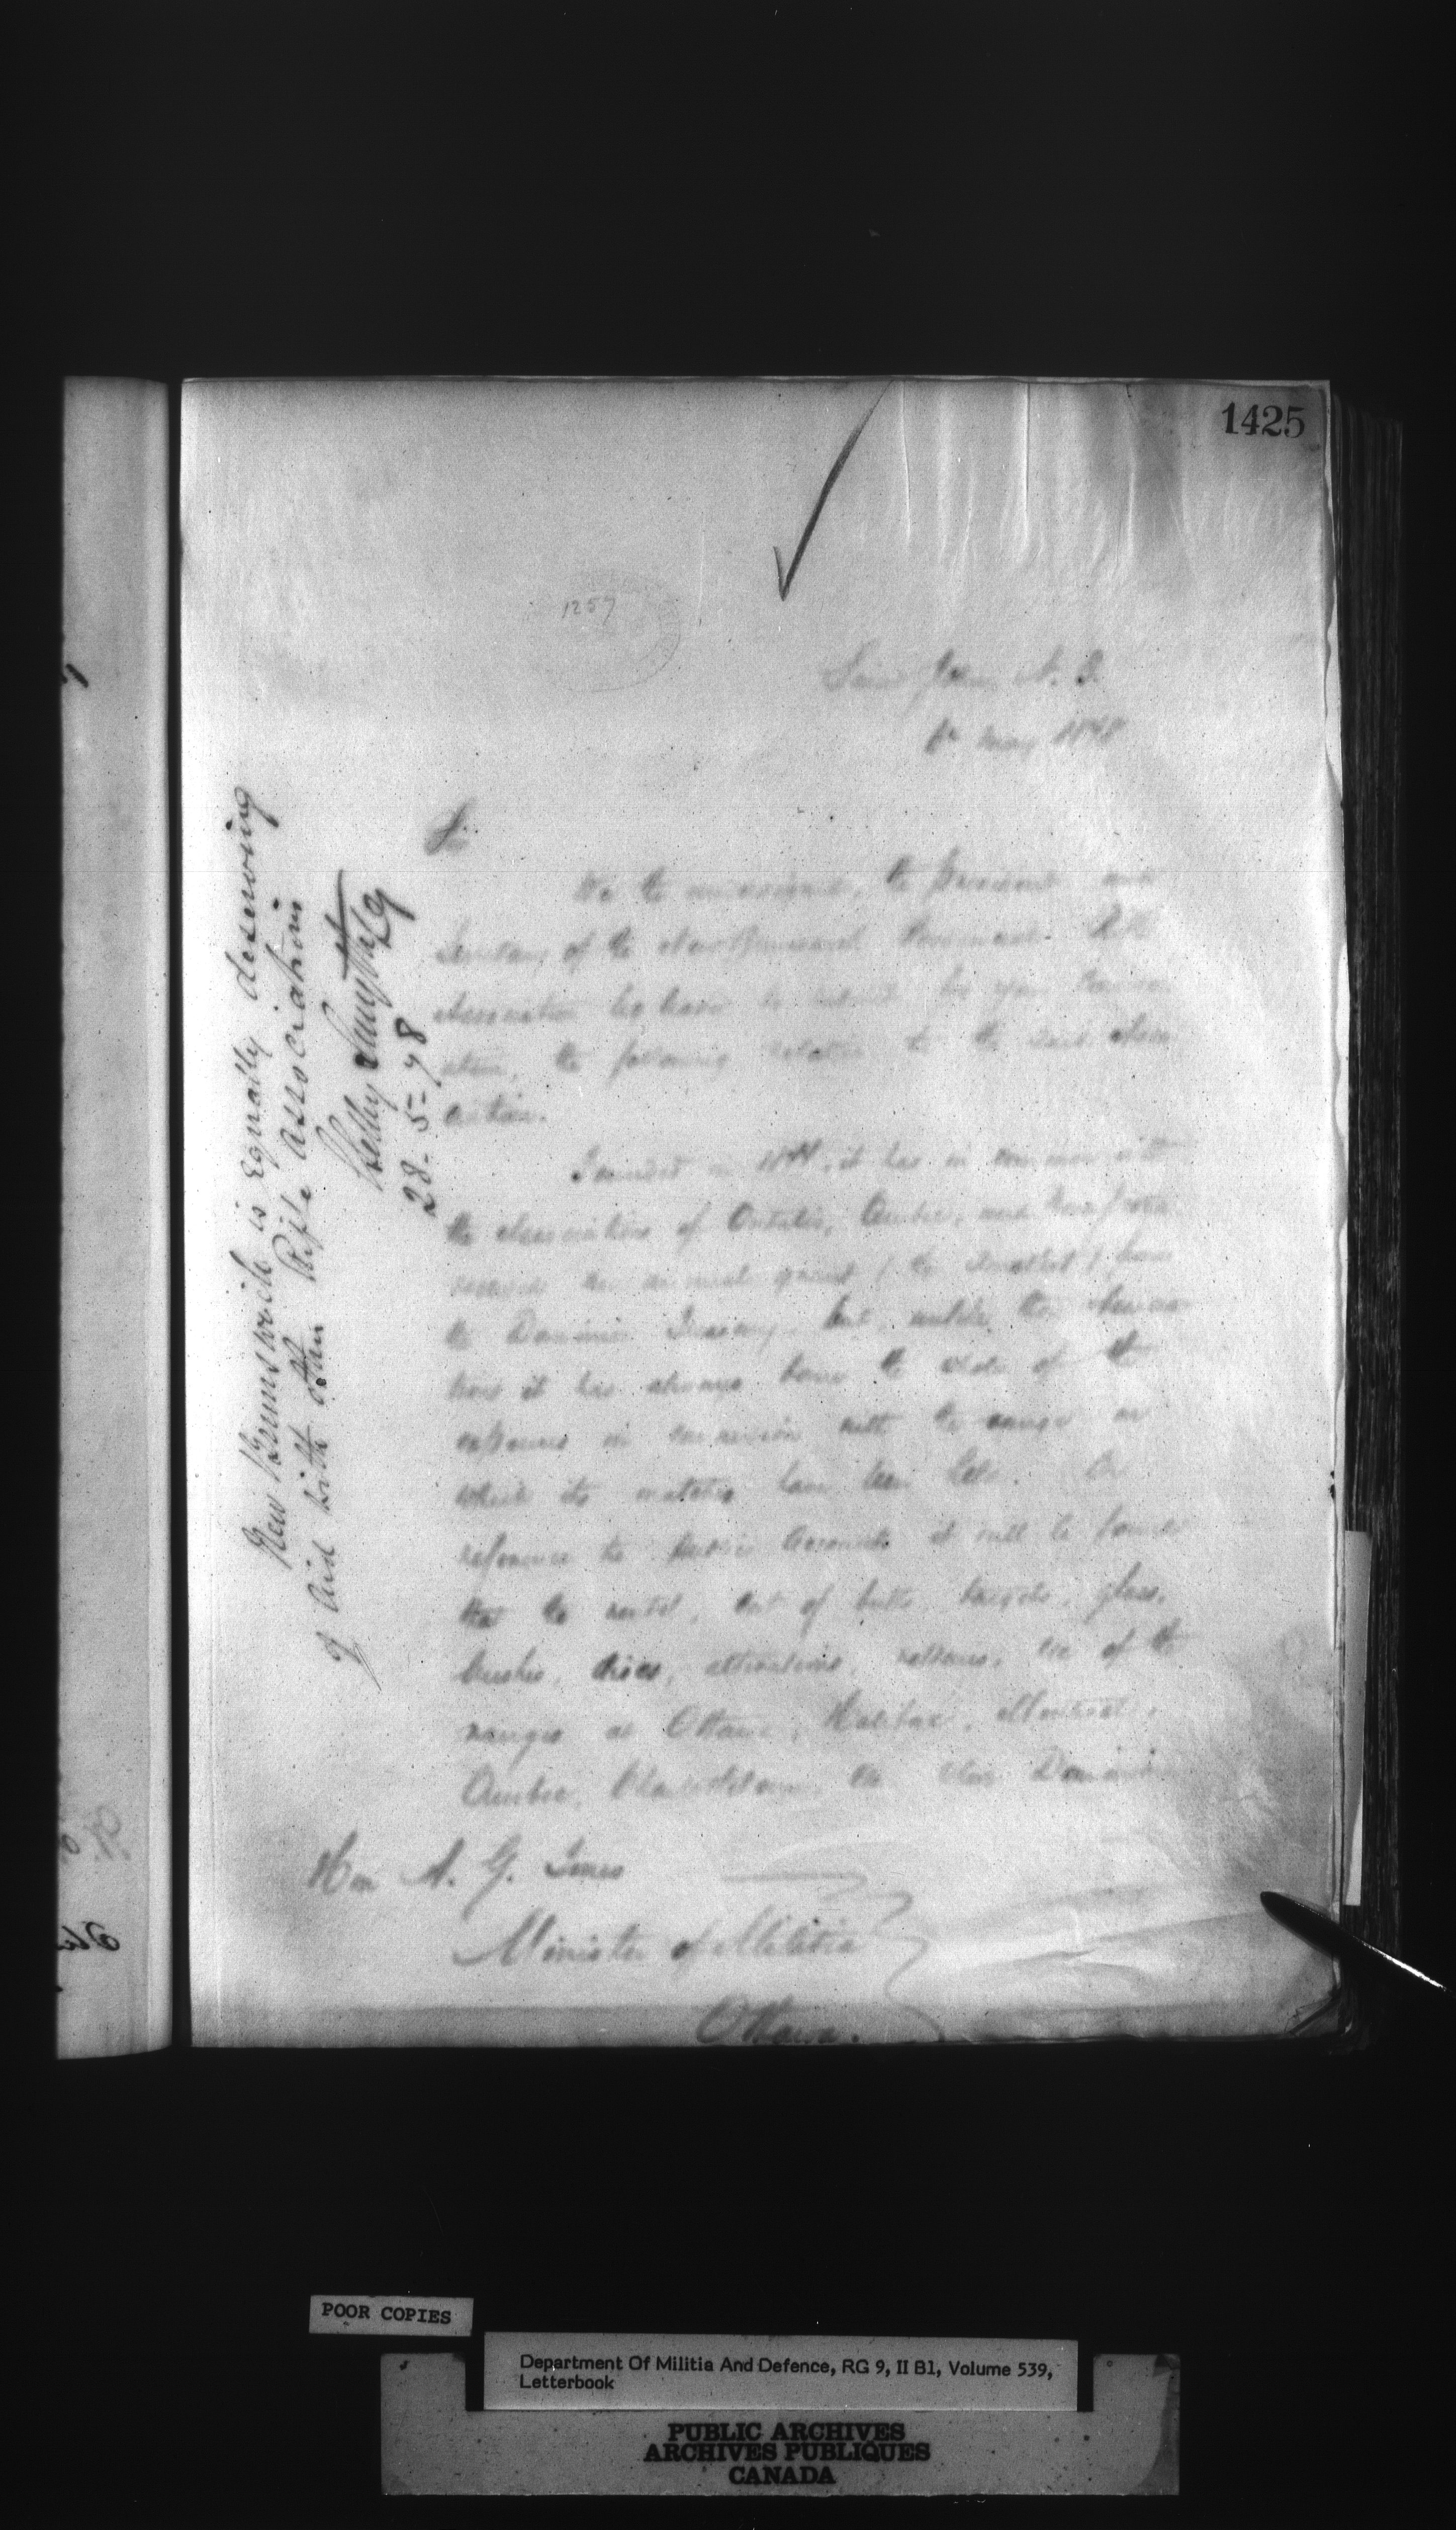 1425
1257
Saint John, N. B.
May 1878
Sir
We the undersigned, the President and
Secretary of the New Brunswick Provincial Rifle
Association beg leave to submit for your
the following relative to the said Asso
ciation.
Founded in it has in common with
the Associations of Ontario, Quebec, and Nova Scotia
received an annual grant (the smallest) from
the Dominion Treasury but, unlike the Associa
tions it has always borne the whole of the
expenses in connexion with the range on
which its matches have been held. On
reference to Public Accounts it will be found
that the rental, cost of butts, targets, glass,
brushes, discs, alterations, &c of the
ranges at Ottawa, Halifax, Montreal,
Quebec, Charlottetown, &c
Hon A. G. Jones
Minister of Militia
Ottawa.
New Brunswick is equally deserving
of aid with other Rifle Associations
Selby Smyth LG
28-5-78
POOR COPIES
Department Of Militia And Defence, RG 9, II B1, Volume 539,
Letterbook
PUBLIC ARCHIVES
ARCHIVES PUBLIQUES
CANADA